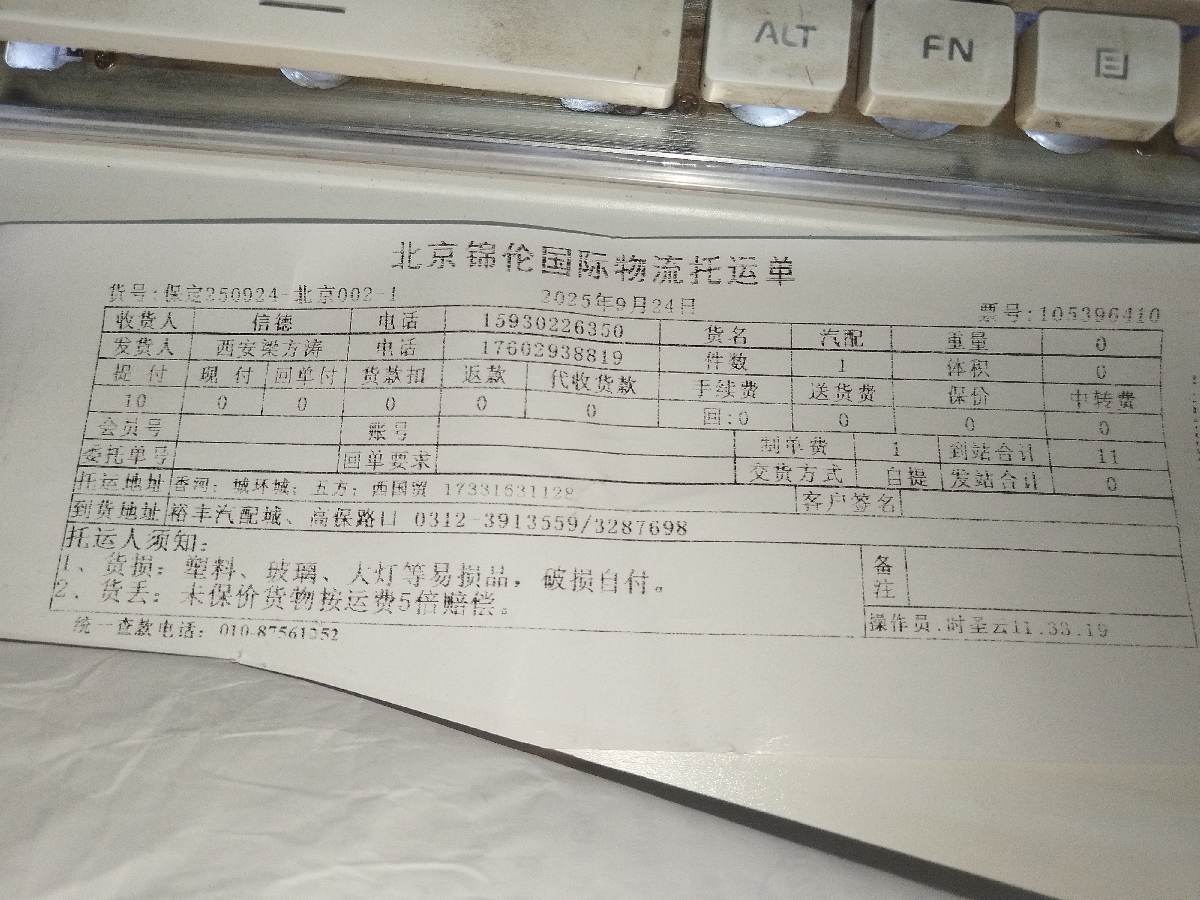 ALT FN
北京锦伦国际物流托运单
货号:保定250924-北京002-1 2025年9月24日 票号:105396410
收货人 信德 电话 15930226350 货名 汽配 重量 0
发货人 西安梁方涛 电话 17602938819 件数 1 体积 0
提付 现付 回单付 货款扣 返款 代收货款 手续费 送货费 保价 中转费
10 0 0 0 0 0 回:0 0 0 0
会员号 账号 制单费 1 到站合计 11
委托单号 回单要求 交货方式 自提 发站合计 0
托运地址 香河;城环城;五方;西国贸 17331631128 客户签名
到货地址 裕丰汽配城、高保路口 0312-3913559/3287698
托运人须知:
1、货损:塑料、玻璃、大灯等易损品,破损自付。
2、货丢:未保价货物按运费5倍赔偿。
备注
统一查款电话:010-87561252
操作员:时圣云11.33.19